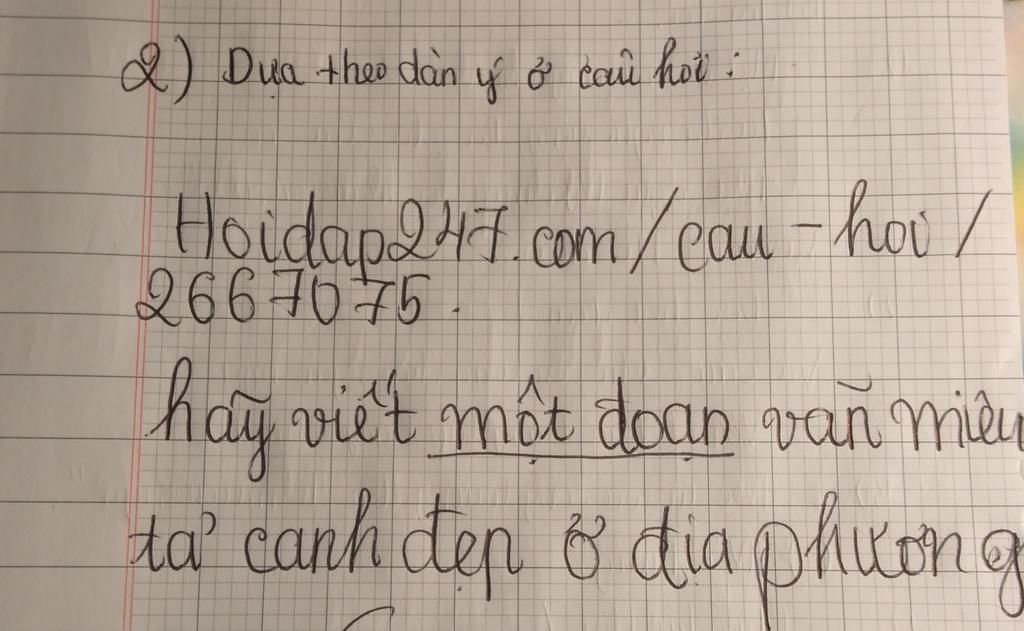 2) Dựa theo dàn ý ở câu hỏi :
Hoidap247.com/cau-hoi/
2667075.
hãy viết một đoạn văn miêu
tả cảnh đẹp ở địa phương